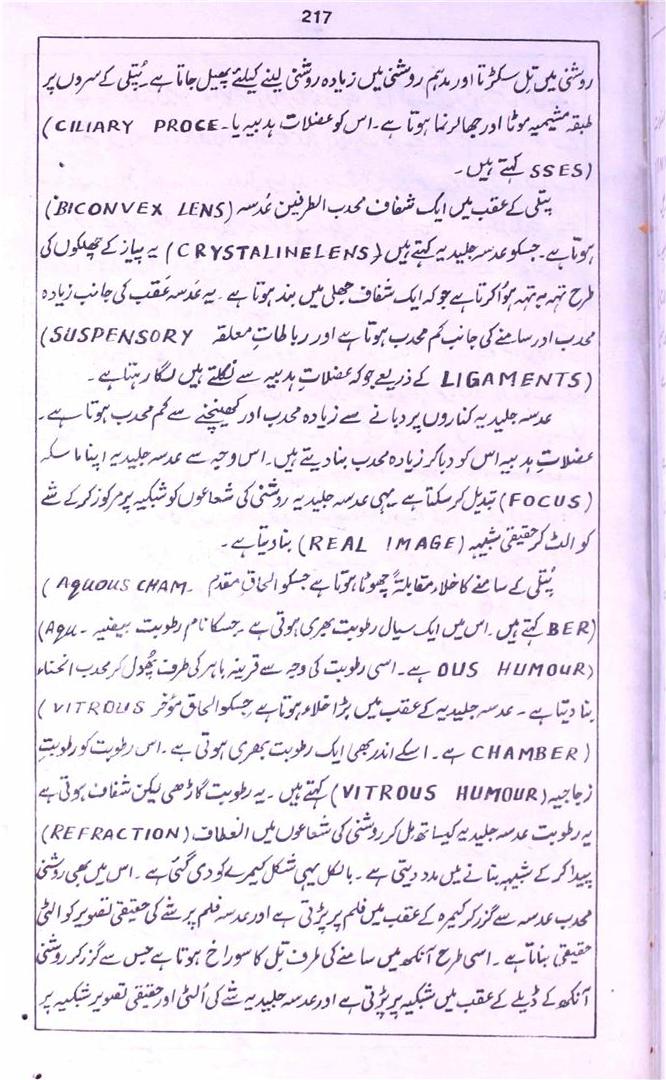 217
روشنی میں تِل سکڑتا اور مدہم روشنی میں زیادہ روشنی لینے کیلئے پھیل جاتا ہے۔ پُتلی کے سروں پر
طبقہ مشیمیہ موٹا اور جھالر نما ہوتا ہے۔ اس کو عضلات ہدبیہ یا۔ CILIARY PROCE)
SSES) کہتے ہیں۔
پتلی کے عقب میں ایک شفاف محدب الطرفین عُدسہ (BICONVEX LENS)
ہوتا ہے۔ جسکو عدسہ جلیدیہ کہتے ہیں (CRYSTALINELENS) یہ پیاز کے چھلکوں کی
طرح تہہ بہ تہہ ہُوا کرتا ہے جو کہ ایک شفاف جھلی میں بند ہوتا ہے۔ یہ عُدسہ عَقب کی جانب زیادہ
محدب اور سامنے کی جانب کم محدب ہوتا ہے اور رباطاتِ معلقہ SUSPENSORY)
LIGAMENTS) کے ذریعے جو کہ عضلاتِ ہدبیہ سے نکلتے ہیں لگا رہتا ہے۔
عدسہ جلیدیہ کناروں پر دبانے سے زیادہ محدب اور کھینچنے سے کم محدب ہوتا ہے۔
عضلاتِ ہدبیہ اس کو دبا کر زیادہ محدب بنا دیتے ہیں۔ اس وجہ سے عدسہ جلیدیہ اپنا ماسکہ
(FOCUS) تبدیل کر سکتا ہے یہی عدسہ جلیدیہ روشنی کی شعاعوں کو شبکیہ پر مرکوز کر کے شے
کو الٹ کر حقیقی شبیہہ (REAL IMAGE) بنا دیتا ہے۔
پُتلی کے سامنے کا خلاء مقابلۃً چھوٹا ہوتا ہے جسکو الحاق مقدم ۔ AQUOUS CHAM)
BER) کہتے ہیں۔ اس میں ایک سیال رطوبت بھری ہوتی ہے۔ جسکا نام رطوبت بیضیہ ۔ AQU)
OUS HUMOUR) ہے۔ اسی رطوبت کی وجہ سے قرینہ باہر کی طرف پھُول کر محدب انحناء
بنا دیتا ہے۔ عدسہ جلیدیہ کے عقب میں بڑا خلاء ہوتا ہے جسکو الحاق مؤخر VITROUS)
CHAMBER) ہے۔ اسکے اندر بھی ایک رطوبت بھری ہوتی ہے۔ اس رطوبت کو رطوبتِ
زجاجیہ (VITROUS HUMOUR) کہتے ہیں۔ یہ رطوبت گاڑھی لیکن شفاف ہوتی ہے
یہ رطوبت عدسہ جلیدیہ کیساتھ مل کر روشنی کی شعاعوں میں انعطاف (REFRACTION)
پیدا کر کے شبیہہ بنانے میں مدد دیتی ہے۔ بالکل یہی شکل کیمرے کو دی گئی ہے۔ اس میں بھی روشنی
محدب عدسہ سے گزر کر کیمرہ کے عقب میں فلم پر پڑتی ہے اور عدسہ فلم پر شے کی حقیقی تصویر کو الٹی
حقیقی بناتا ہے۔ اسی طرح آنکھ میں سامنے کی طرف تِل کا سوراخ ہوتا ہے جس سے گزر کر روشنی
آنکھ کے ڈیلے کے عقب میں شبکیہ پر پڑتی ہے اور عدسہ جلیدیہ شے کی اُلٹی اور حقیقی تصویر شبکیہ پر